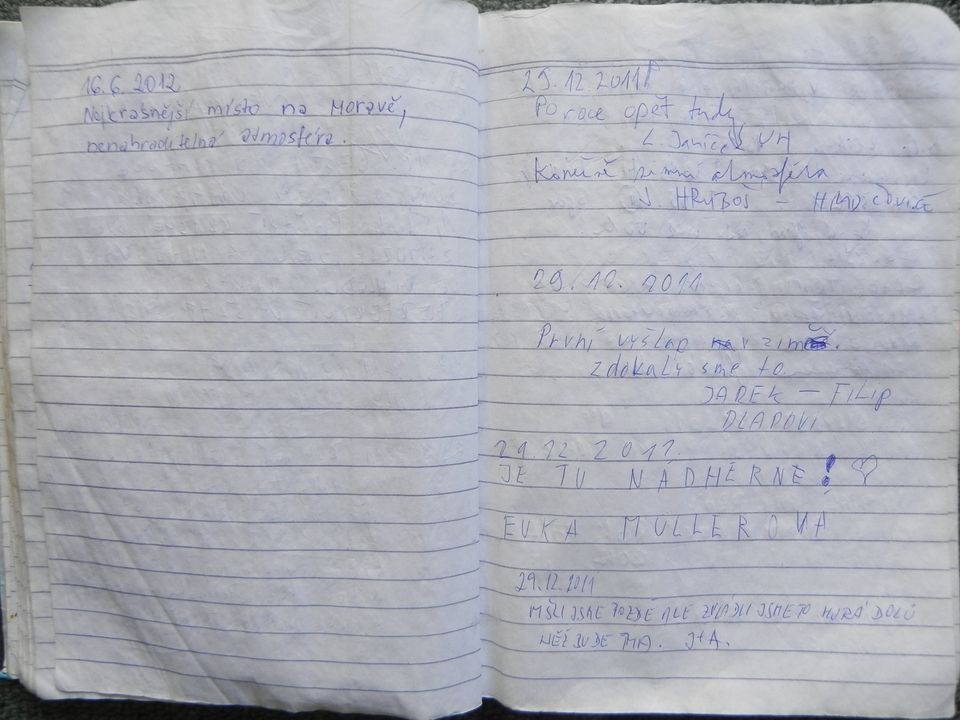 16.6.2012
Nejkrásnější místo na Moravě,
nenahraditelná atmosféra.
29.12.2011
Po roce opět tudy
L. Janíček UH
Konečně zimní atmosféra
J. HRUBOŠ –
29.12.2011
První výšlap v zimě.
zdolaly sme to
JAREK – FILIP
DLAPOVI
29.12.2011.
JE TU NÁDHERNĚ!
EVKA MÜLLEROVÁ
29.12.2011
MŠLI JSME POZDĚ ALE ZVLÁDLI JSME TO HURÁ DOLŮ
NĚŽ BUDE TMA. J+A.